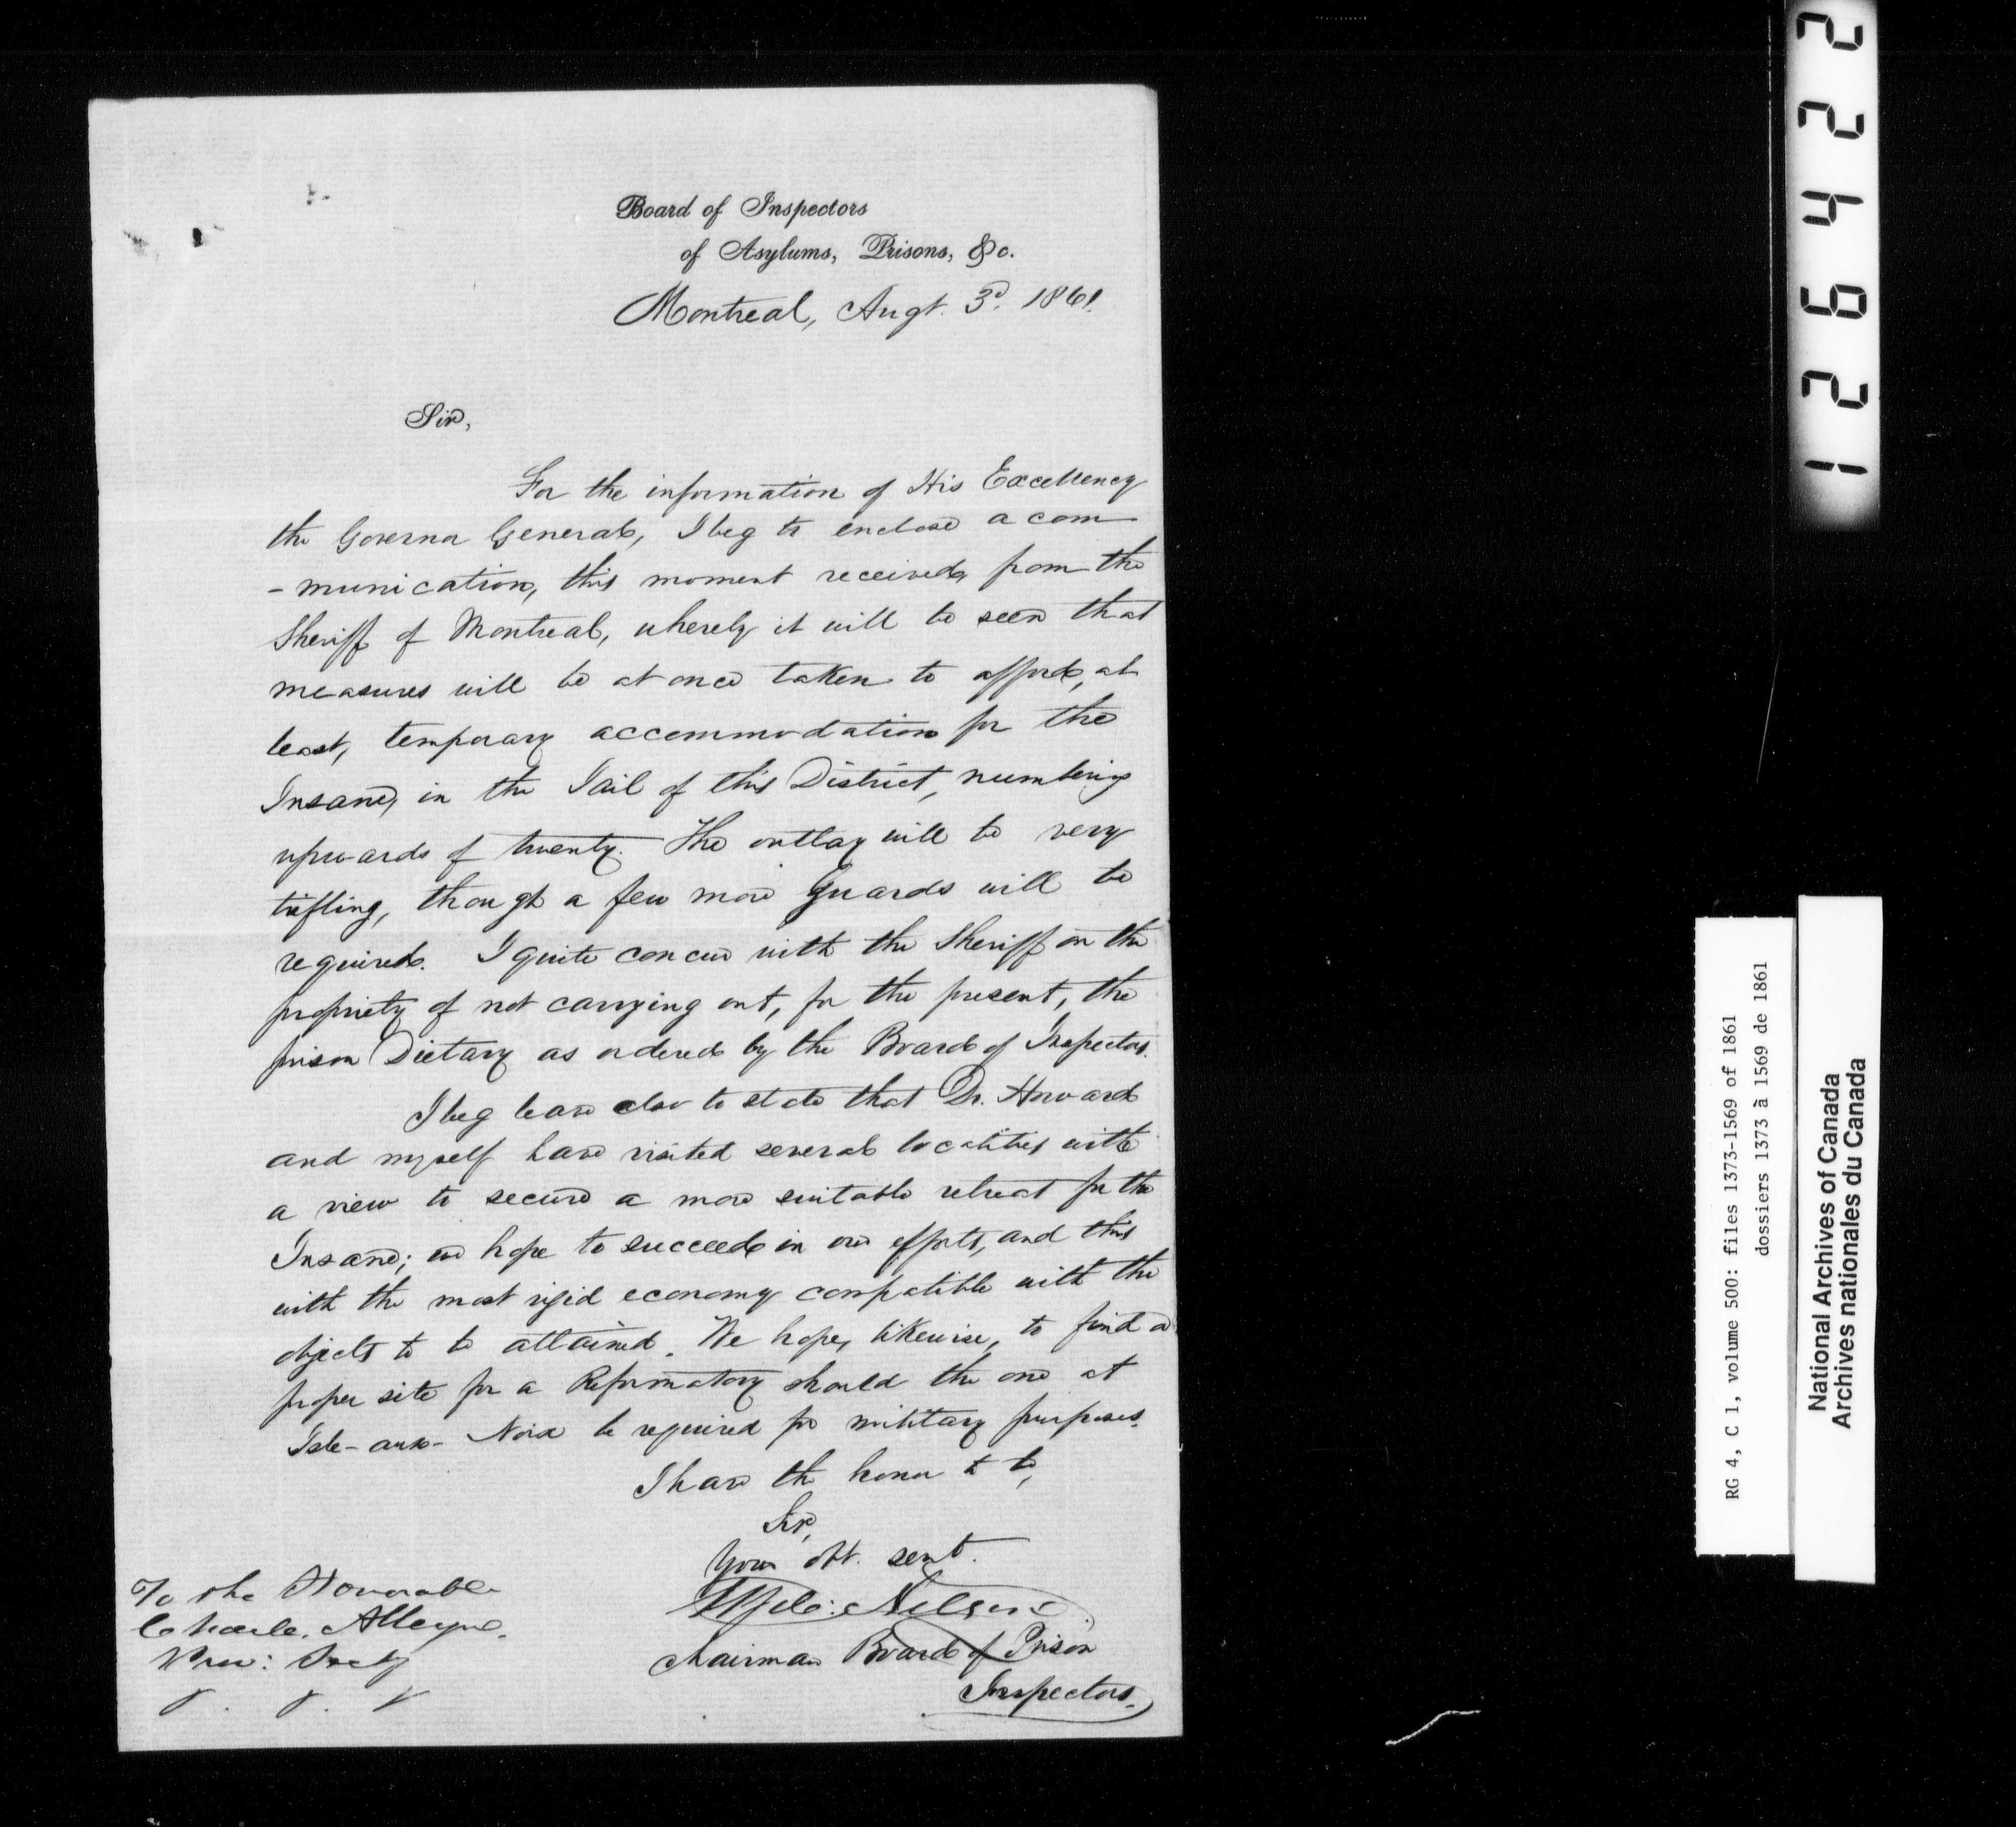 Board of Inspectors
of Asylums, Prisons, &c.
Montreal, Augt. 3d. 1861.
Sir,
For the information of His Excellency
the Governor General, I beg to enclose a com
-munication, this moment received from the
Sheriff of Montreal, whereby it will be seen that
measures will be at once taken to afford, at
least, temporary accommodation for the
Insane, in the Jail of this District, numbering
upwards of twenty. The outlay will be very
trifling, though a few more Guards will be
required. I quite concur with the Sheriff on the
propriety of not carrying out, for the present, the
prison Dietary as ordered by the Board of Inspectors.
I beg leave also to state that Dr. Howard
and myself have visited several localities with
a view to secure a more suitable retreat for the
Insane; we hope to succeed in our efforts, and this
with the most rigid economy compatible with the
objects to be attained. We hope, likewise, to find a
proper site for a Reformatory should the one at
Isle-aux-Noix be required for military purposes.
I have the honor to be,
Sir,
Your obt. servt.
Wolfred Nelson
Chairman Board of Prison
Inspectors.
To the Honorable
Charles Alleyn.
Prov: Secty
RG 4, C 1, volume 500: files 1373-1569 of 1861
dossiers 1373 à 1569 de 1861
National Archives of Canada
Archives nationales du Canada
126422